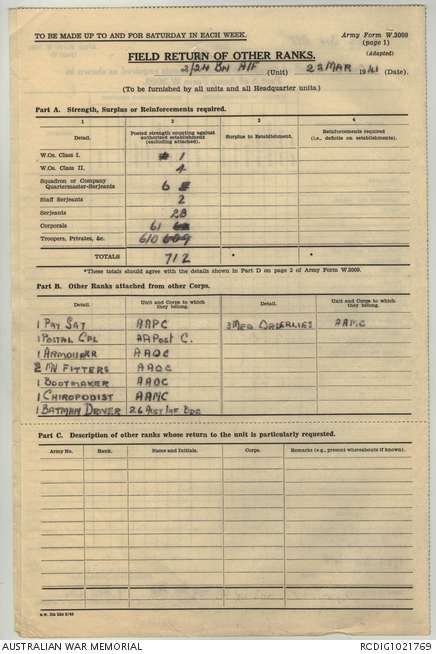 TO BE MADE UP TO AND FOR SATURDAY IN EACH WEEK.
Army Form W.3009
(page 1)
(Adapted)
FIELD RETURN OF OTHER RANKS.
2/24 BN AIF (Unit) 22 MAR 1941 (Date).
(To be furnished by all units and all Headquarter units.)
Part A. Strength, Surplus or Reinforcements required.
1 2 3 4
Detail. Posted strength counting against authorized establishment (excluding attached). Surplus to Establishment. Reinforcements required (i.e., deficits on establishments).
W.Os. Class I. 1
W.Os. Class II. 4
Squadron or Company Quartermaster-Serjeants 6
Staff Serjeants 2
Serjeants 28
Corporals 61
Troopers, Privates, &c. 610 609
TOTALS 712 * *
*These totals should agree with the details shown in Part D on page 2 of Army Form W.3009.
Part B. Other Ranks attached from other Corps.
Detail. Unit and Corps to which they belong. Detail. Unit and Corps to which they belong.
1 PAY SGT AAPC 3 MED ORDERLIES AAMC
1 POSTAL CPL AAPOST C.
1 ARMOURER AAOC
2 MV FITTERS AAOC
1 BOOTMAKER AAOC
1 CHIROPODIST AAMC
1 BATMAN DRIVER 26 AUST INF BDE
Part C. Description of other ranks whose return to the unit is particularly requested.
Army No. Rank. Names and Initials. Corps. Remarks (e.g., present whereabouts if known).
AUSTRALIAN WAR MEMORIAL
RCDIG1021769